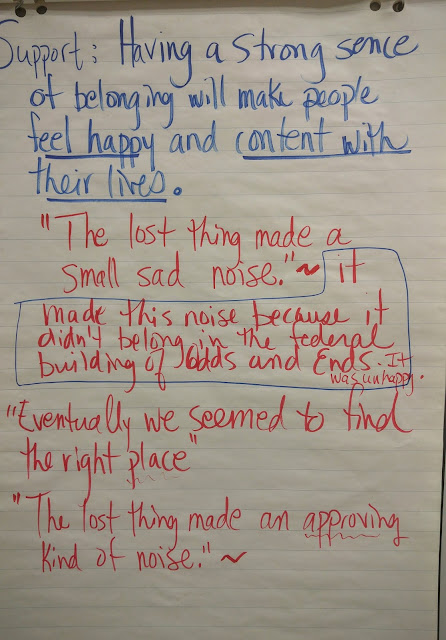 Support: Having a strong sence
of belonging will make people
feel happy and content with
their lives.
"The lost thing made a
small sad noise." ~ it
made this noise because it
didn't belong in the federal
building of Odds and Ends. It
was unhappy.
"Eventually we seemed to find
the right place"
"The lost thing made an approving
kind of noise." ~